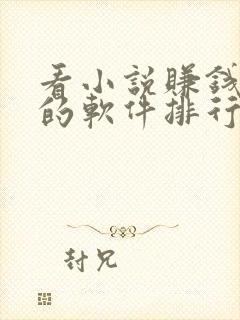 看小說賺錢
的軟件排行
封兄